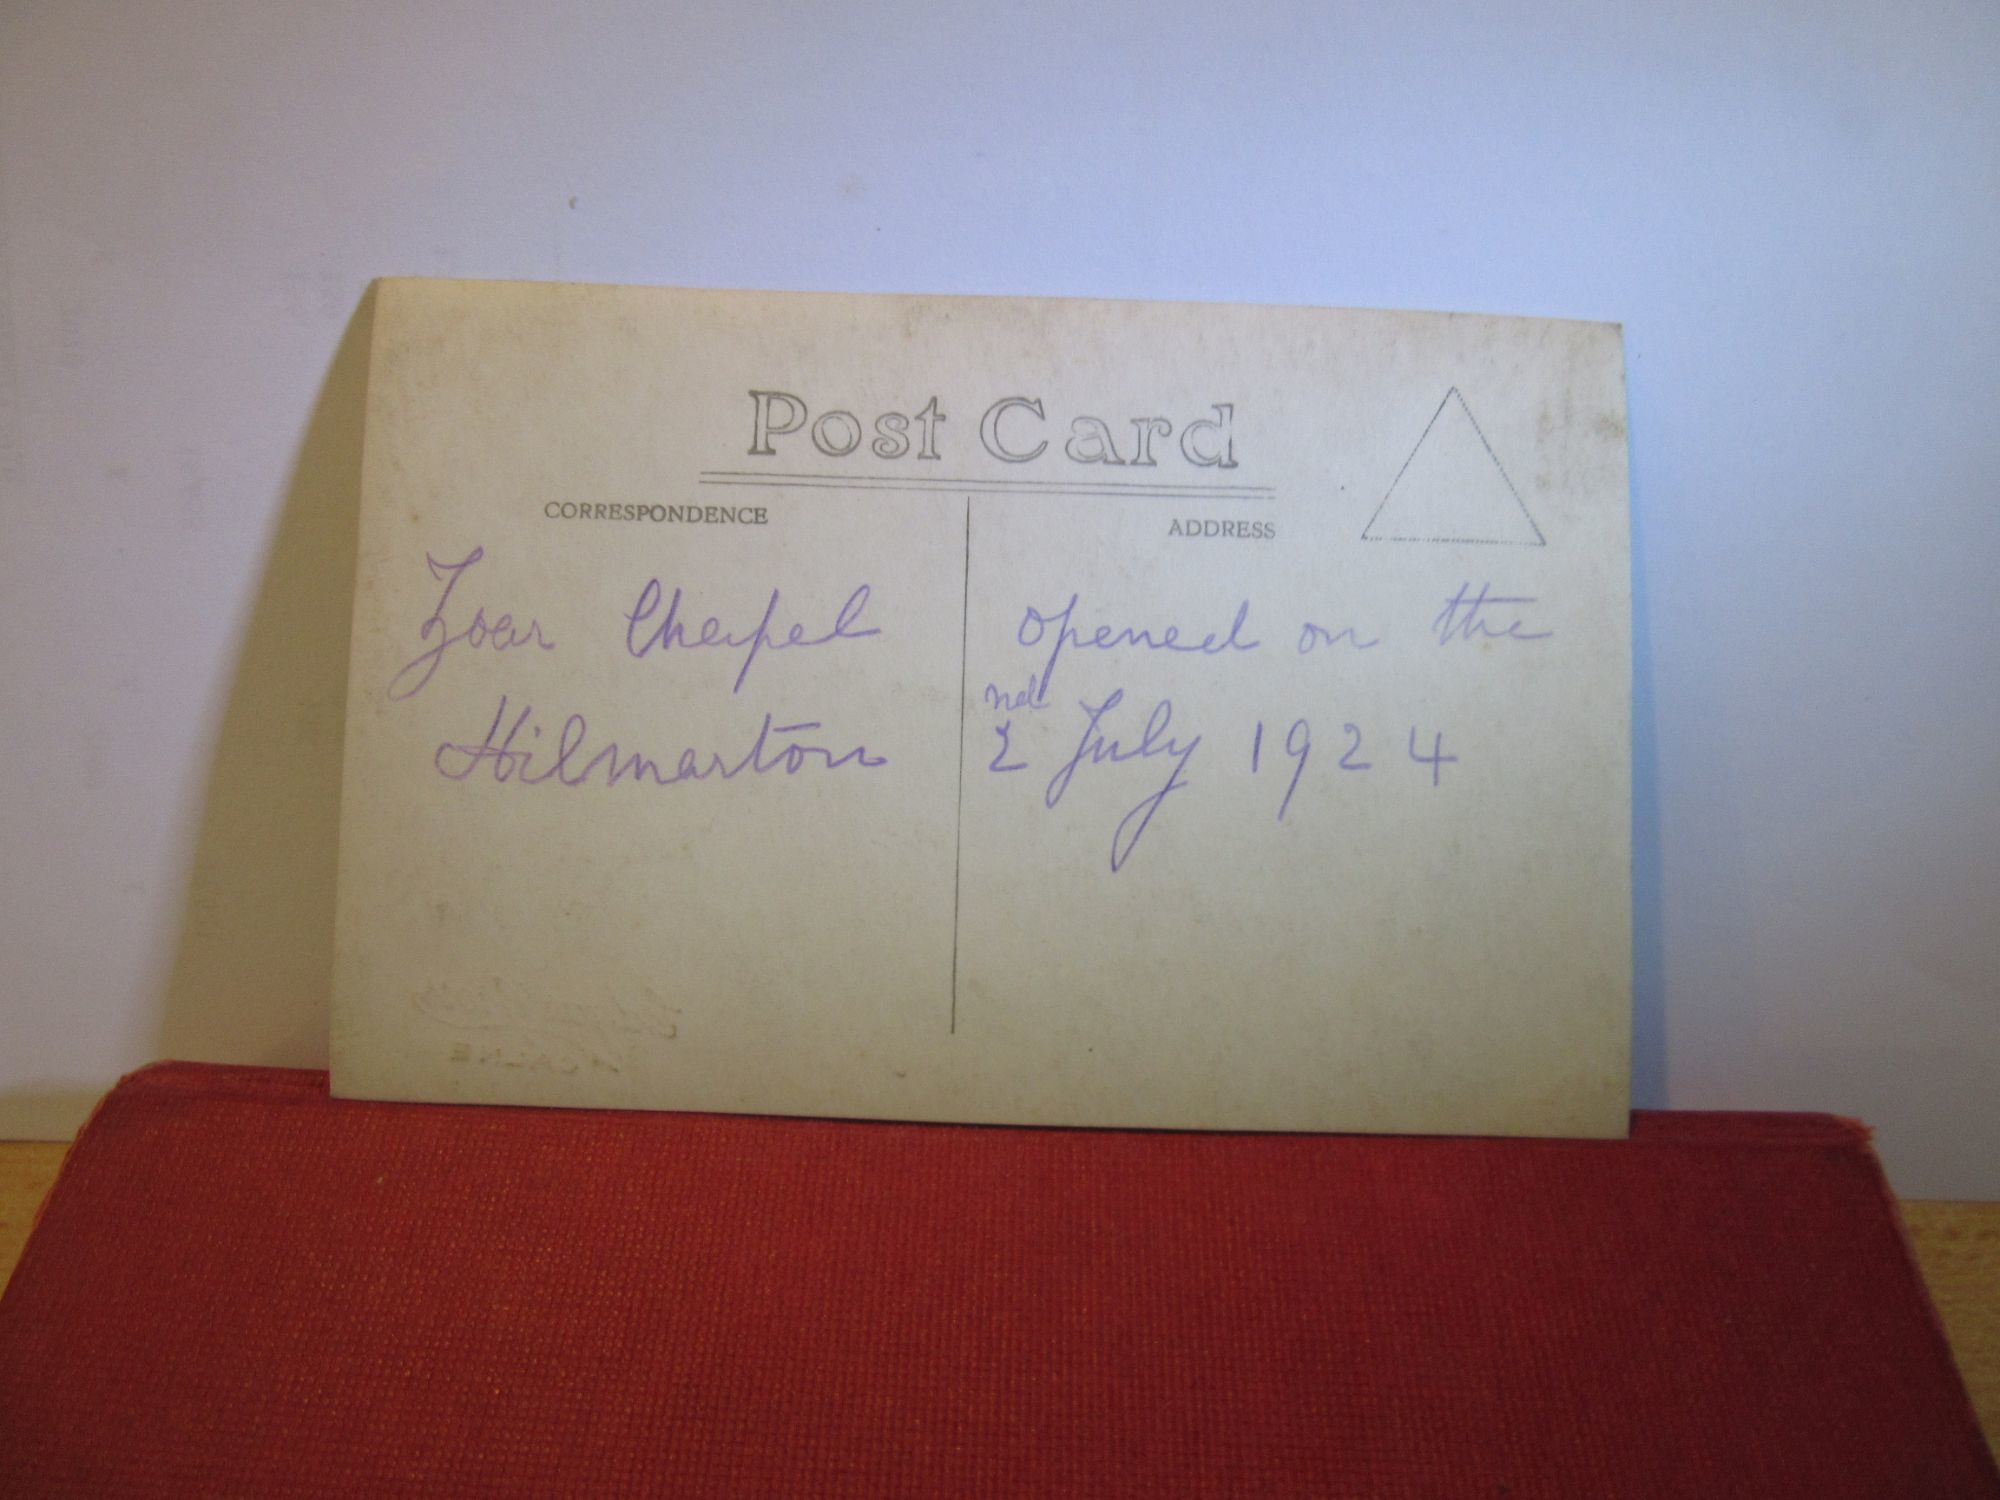 Post Card
CORRESPONDENCE
ADDRESS
Zoar Chapel
Hilmarton
opened on the
2nd July 1924
CALNE